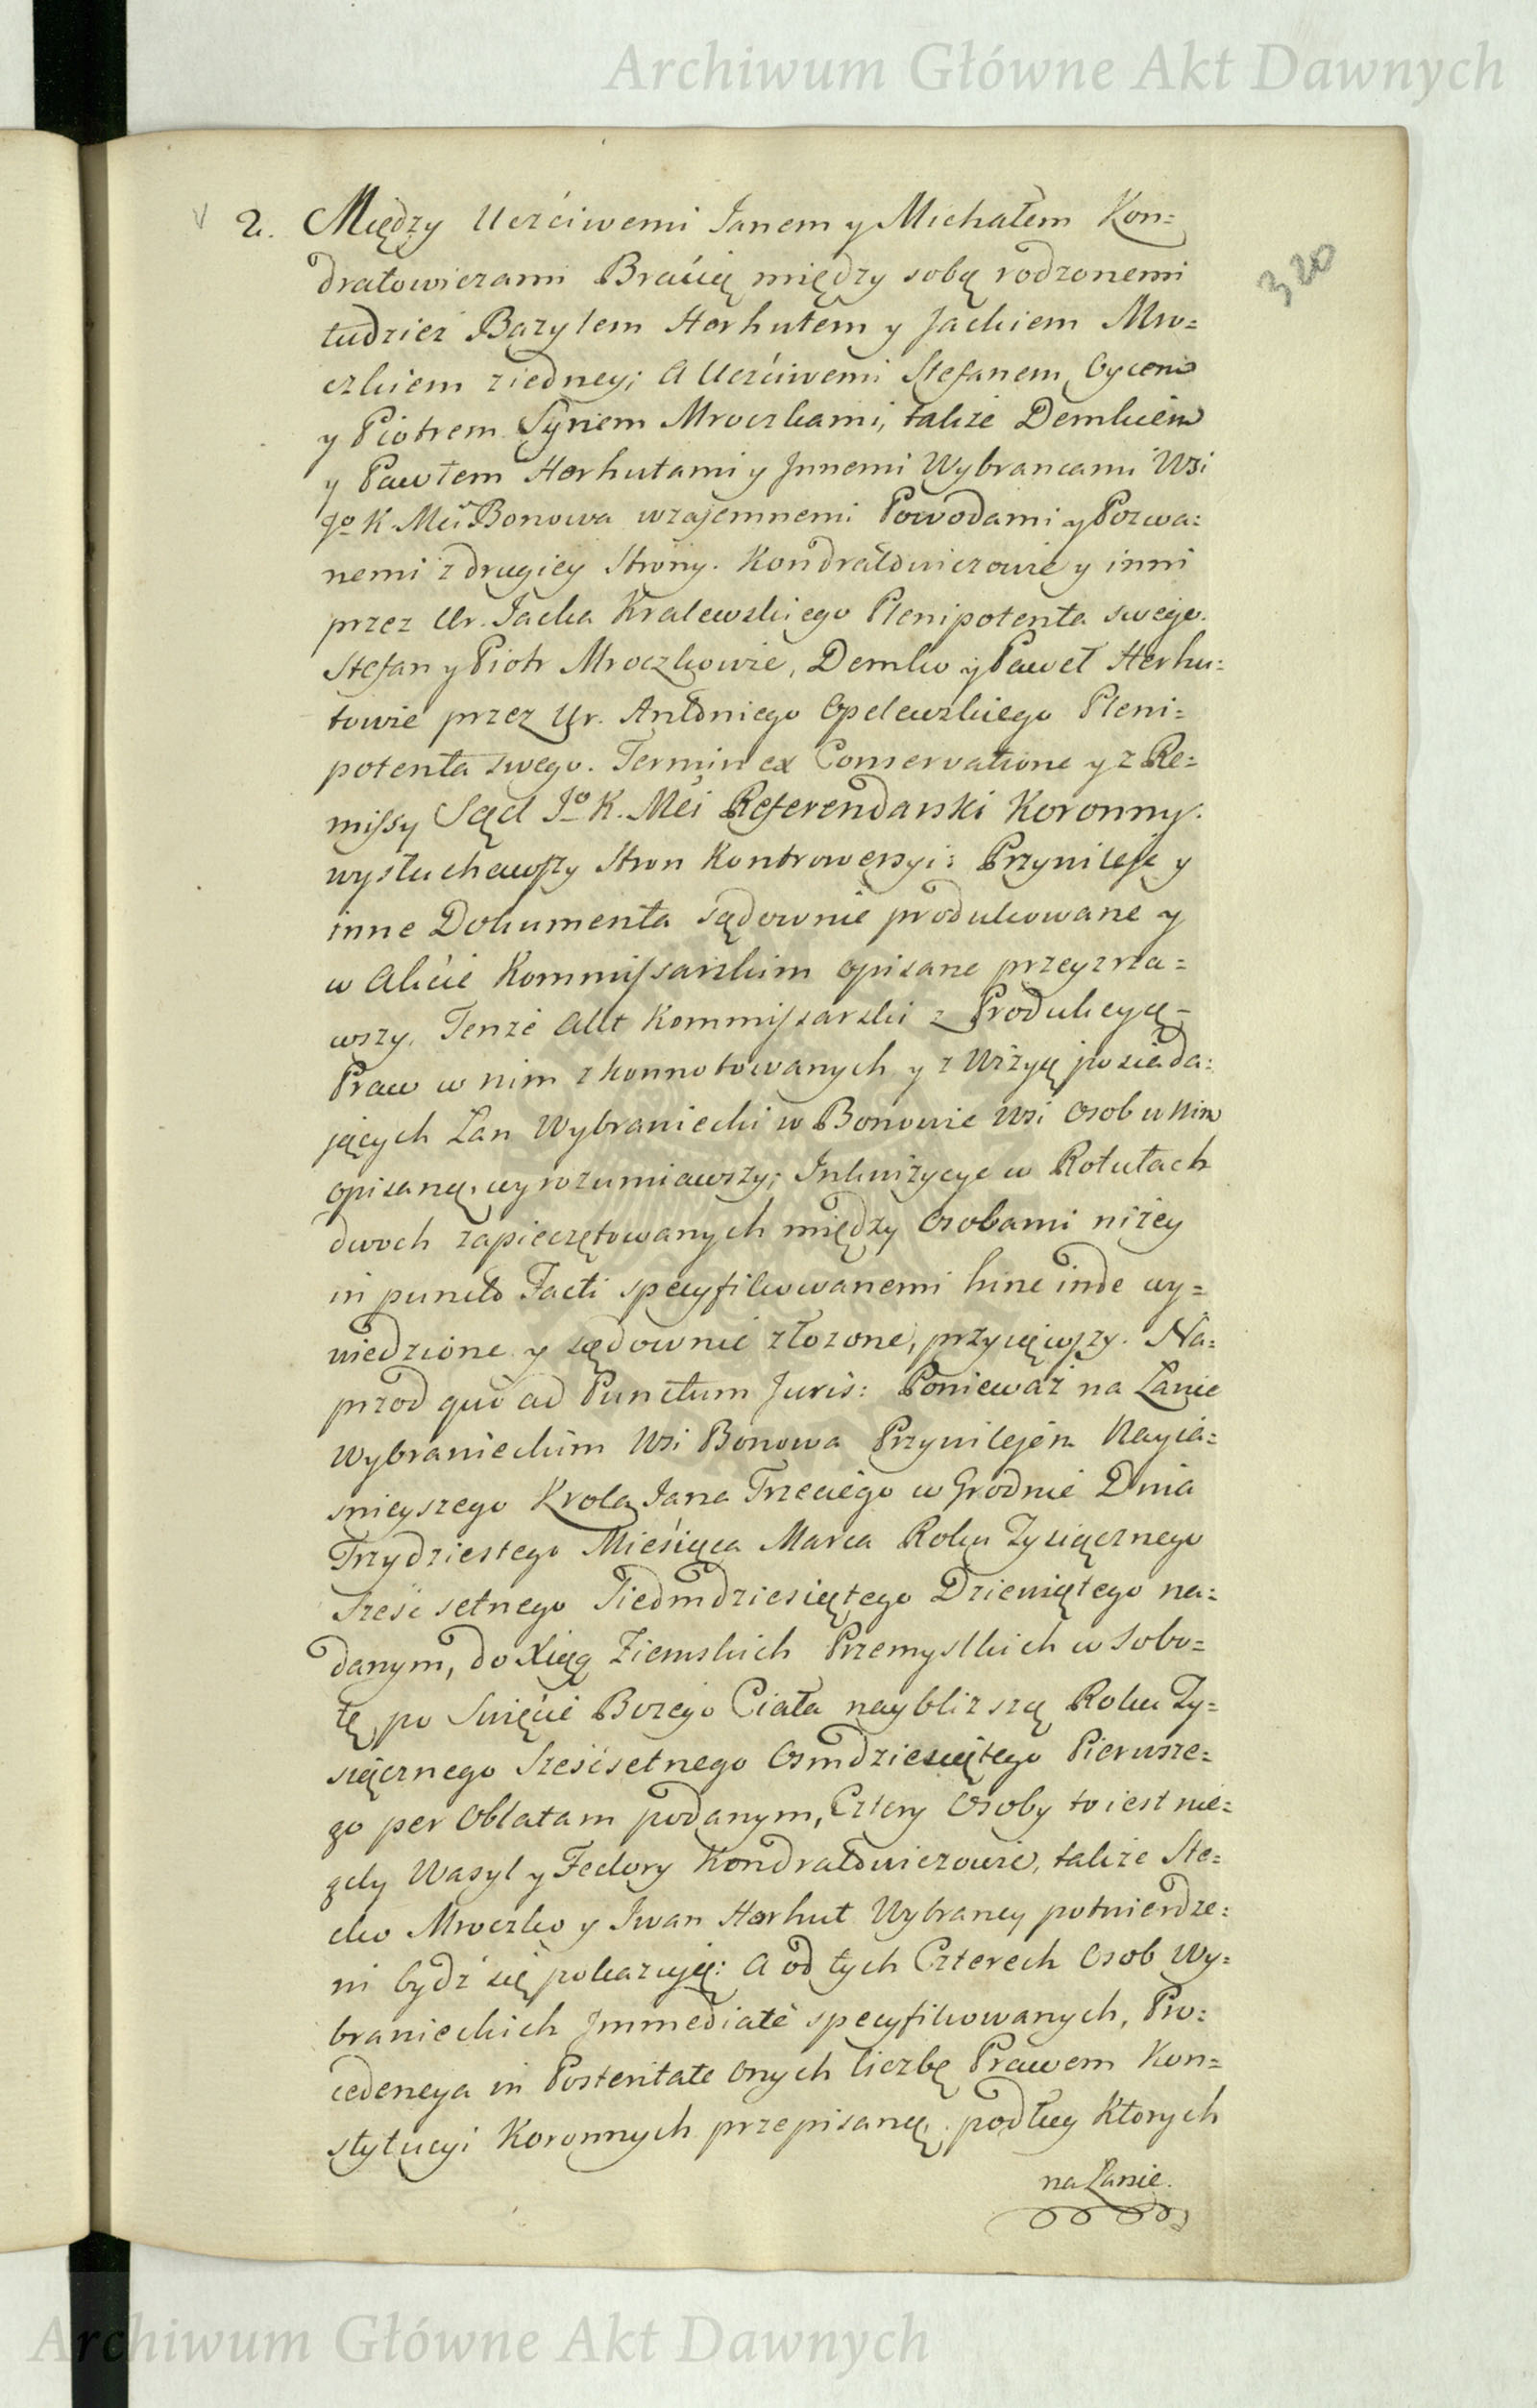 Archiwum Główne Akt Dawnych
2. Między Uczciwemi Janem y Michałem Kon=
dratowiczami Bracią między sobą rodzonemi
tudzież Bazylem Horhutem y Jackiem Mro=
czkiem z iedney; A Uczciwemi Stefanem Oycem
y Piotrem Synem Mroczkami, także Demkiem
y Pawłem Horhutami y Innemi Wybrancami Wsi
Jo K Mci Bonowa wzajemnemi Powodami y Pozwa=
nemi z drugiey Strony. Kondratowiczowie y inni
przez Ur. Jacka Kralewskiego Plenipotenta swego.
Stefan y Piotr Mroczkowie, Demko y Paweł Horhu=
towie przez Ur. Antoniego Opelewskiego Pleni=
potenta swego. Termin ex Conservatione y z Re=
missy Sąd Jo K. Mci Referendarski Koronny.
wysłuchawszy Stron Kontrowersyi: Przywileje y
inne Dokumenta sądownie produkowane y
w Akcie Kommissarskim opisane przeyrza=
wszy. Tenże Akt Kommissarski z Produkcyą
Praw w nim zkonnotowanych y z Wizyą posiada=
jących Łan Wybraniecki w Bonowie Wsi Osob w nim
opisaną, wyrozumiawszy; Inkwizycye w Rotułach
dwoch zapieczętowanych między Osobami niżey
in puncto Facti specyfikowanemi hinc inde wy=
wiedzione y sądownie złożone, przyjąwszy. Na=
przod quo ad Punctum Juris: Ponieważ na Łanie
Wybranieckim Wsi Bonowa Przywilejem Nayia=
snieyszego Krola Jana Trzeciego w Grodnie Dnia
Trzydziestego Miesiąca Marca Roku Tysiącznego
Sześć setnego Siedmdziesiątego Dziewiątego na=
danym, do Xiąg Ziemskich Przemyslkich w Sobo=
tę po Swięcie Bożego Ciała naybliższą Roku Ty=
siącznego Sześćsetnego Osmdziesiątego Pierwsze=
go per Oblatam podanym, Cztery Osoby to iest nie=
gdy Wasyl y Fedory Kondratowiczowie, także Ste=
cko Mroczko y Iwan Horhut Wybrancy potwierdze=
ni bydź się pokazują: A od tych Czterech Osob Wy=
branieckich Immediate specyfikowanych, Pro=
cedencya in Posteritate Onych liczbę Prawem Kon=
stytucyi Koronnych przepisaną, podług Ktorych
na Łanie.
320
Archiwum Główne Akt Dawnych